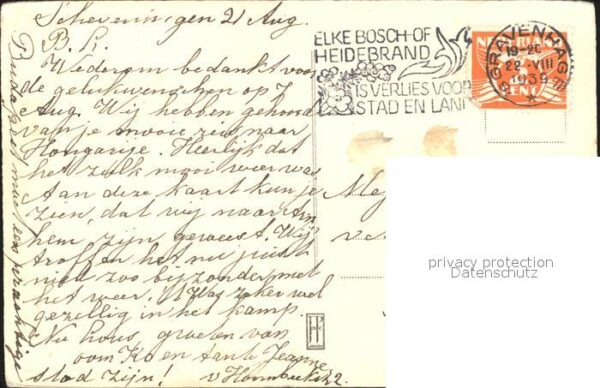 Scheveningen 21 Aug.
B. K.
Wederom bedankt voor
de gelukwenschen op 7
Aug. Wij hebben gehoord
van je mooie reis naar
Hongarije. Heerlijk dat
het zulk mooi weer was
Aan deze kaart kun je
zien, dat wij naar Arn
hem zijn geweest. Wij
troffen het nu juist
niet zoo bijzonder met
het weer. 't Was zeker wel
gezellig in het kamp
Nu Loous, groeten van
oom Ko en tante Jeanne
Budapest moet een prachtige
stad zijn!
ELKE BOSCH- OF
HEIDEBRAND
IS VERLIES VOOR
STAD EN LAND
'S GRAVENHAGE
22-VIII
1939
NEDERLAND
CENT
Me
ve
privacy protection
Datenschutz